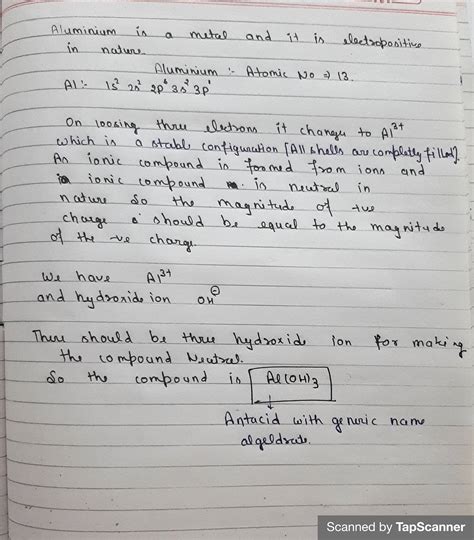 Aluminium is a metal and it is electropositive
in nature.
Aluminium :- Atomic No ⇒ 13.
Al :- 1s² 2s² 2p⁶ 3s² 3p¹
On loosing three electrons it changes to Al³⁺
which is a stabl configuration [All shells are completly filled].
An ionic compound is formed from ions and
ionic compound is neutral in
nature so the magnitude of +ve
charge should be equal to the magnitude
of the -ve charge.
We have Al³⁺
and hydroxide ion OH⊖
There should be three hydroxide ion for making
the compound Neutral.
So the compound is Al(OH)₃
Antacid with generic name
algeldrate.
Scanned by TapScanner